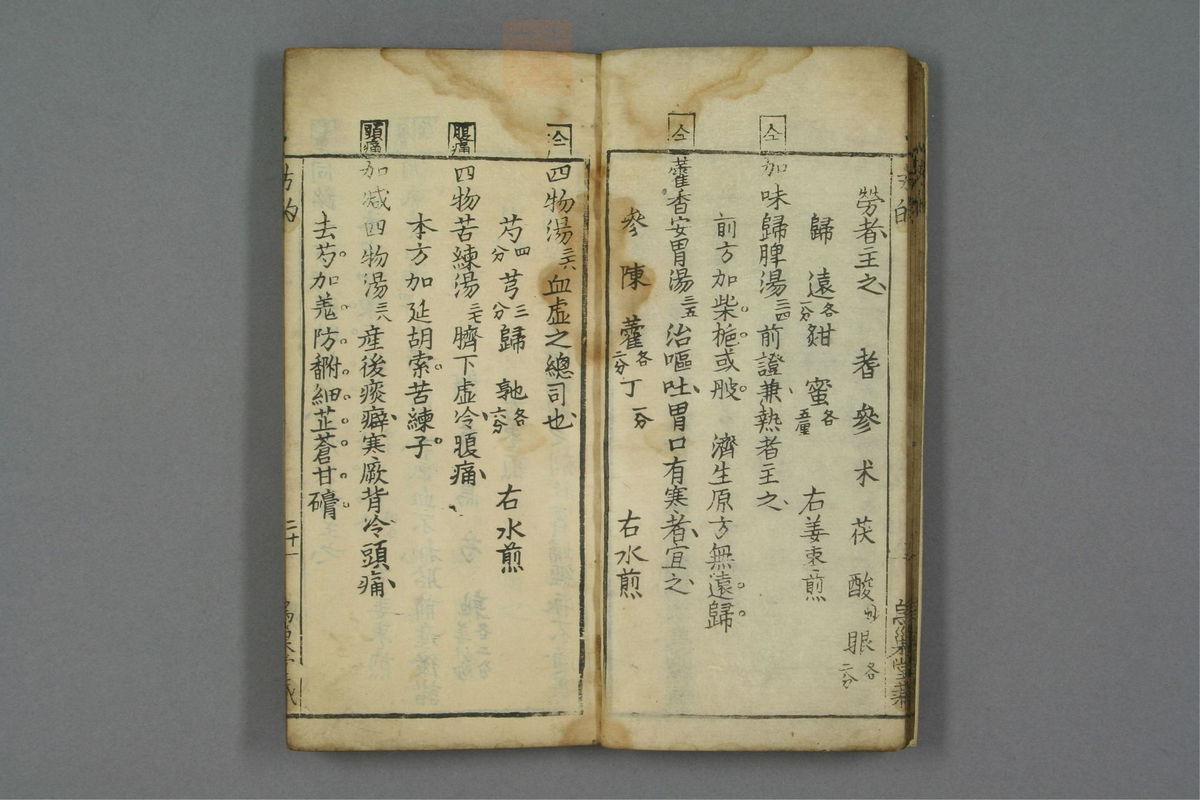 勞者主之　耆參朮茯酸眼各二分
歸遠各一分　甜蜜各　右姜枣煎
加味歸脾湯三四 前證兼熱者主之
前方加柴梔或般　濟生原方無遠歸
藿香安胃湯三五 治嘔吐胃口有寒者宜之
參陳藿各二分丁一分　右水煎
四物湯三六 血虛之總司也
芍四分芎三分歸　各六分　右水煎
腹痛
四物苦練湯三七 臍下虛冷腹痛
本方加延胡索苦練子
頭痛
加减四物湯三八 産後痰癖寒厥背冷頭痛
去芍加羗防細芷蒼甘
方的
二十一